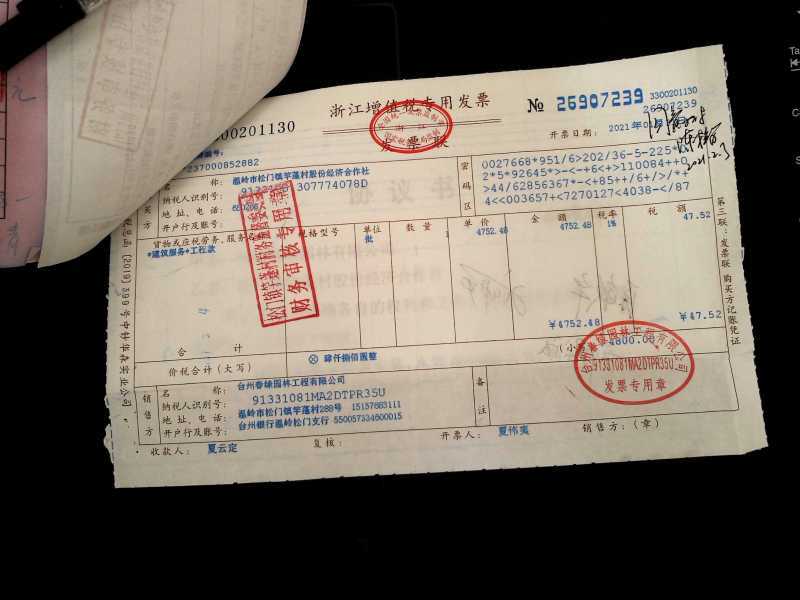 浙江增值税专用发票
发票联
№ 26907239
3300201130
26907239
00201130
开票日期:
237000852882
名称: 温岭市松门镇苹蓬村股份经济合作社
纳税人识别号:
307774078D
地址、电话:
开户行及账号:
密码区
0027668*951/6>202/36-5-225*
2*5*92645*>-<-+6<+>110084++0
>44/62856367*-<+85++/6+/>/*+
4<<003657+<7270127<4038-</87
货物或应税劳务、服务名称
规格型号
单位
数量
单价
金额
税率
税额
*建筑服务*工程款
批
4752.48
4752.48
1%
47.52
合计
¥4752.48
¥47.52
价税合计(大写)
⊗ 肆仟捌佰圆整
(小
4800.00
销售方
名称: 台州春绿园林工程有限公司
纳税人识别号: 91331081MA2DTPR35U
地址、电话: 温岭市松门镇苹蓬村288号 15157683111
开户行及账号: 台州银行温岭松门支行 550057334600015
备注
收款人: 夏云定
复核:
开票人: 夏伟夷
销售方:(章)
第三联:发票联 购买方记账凭证
财务审核专用章
台州春绿园林工程有限公司
91331081MA2DTPR35U
发票专用章
2021.2.3